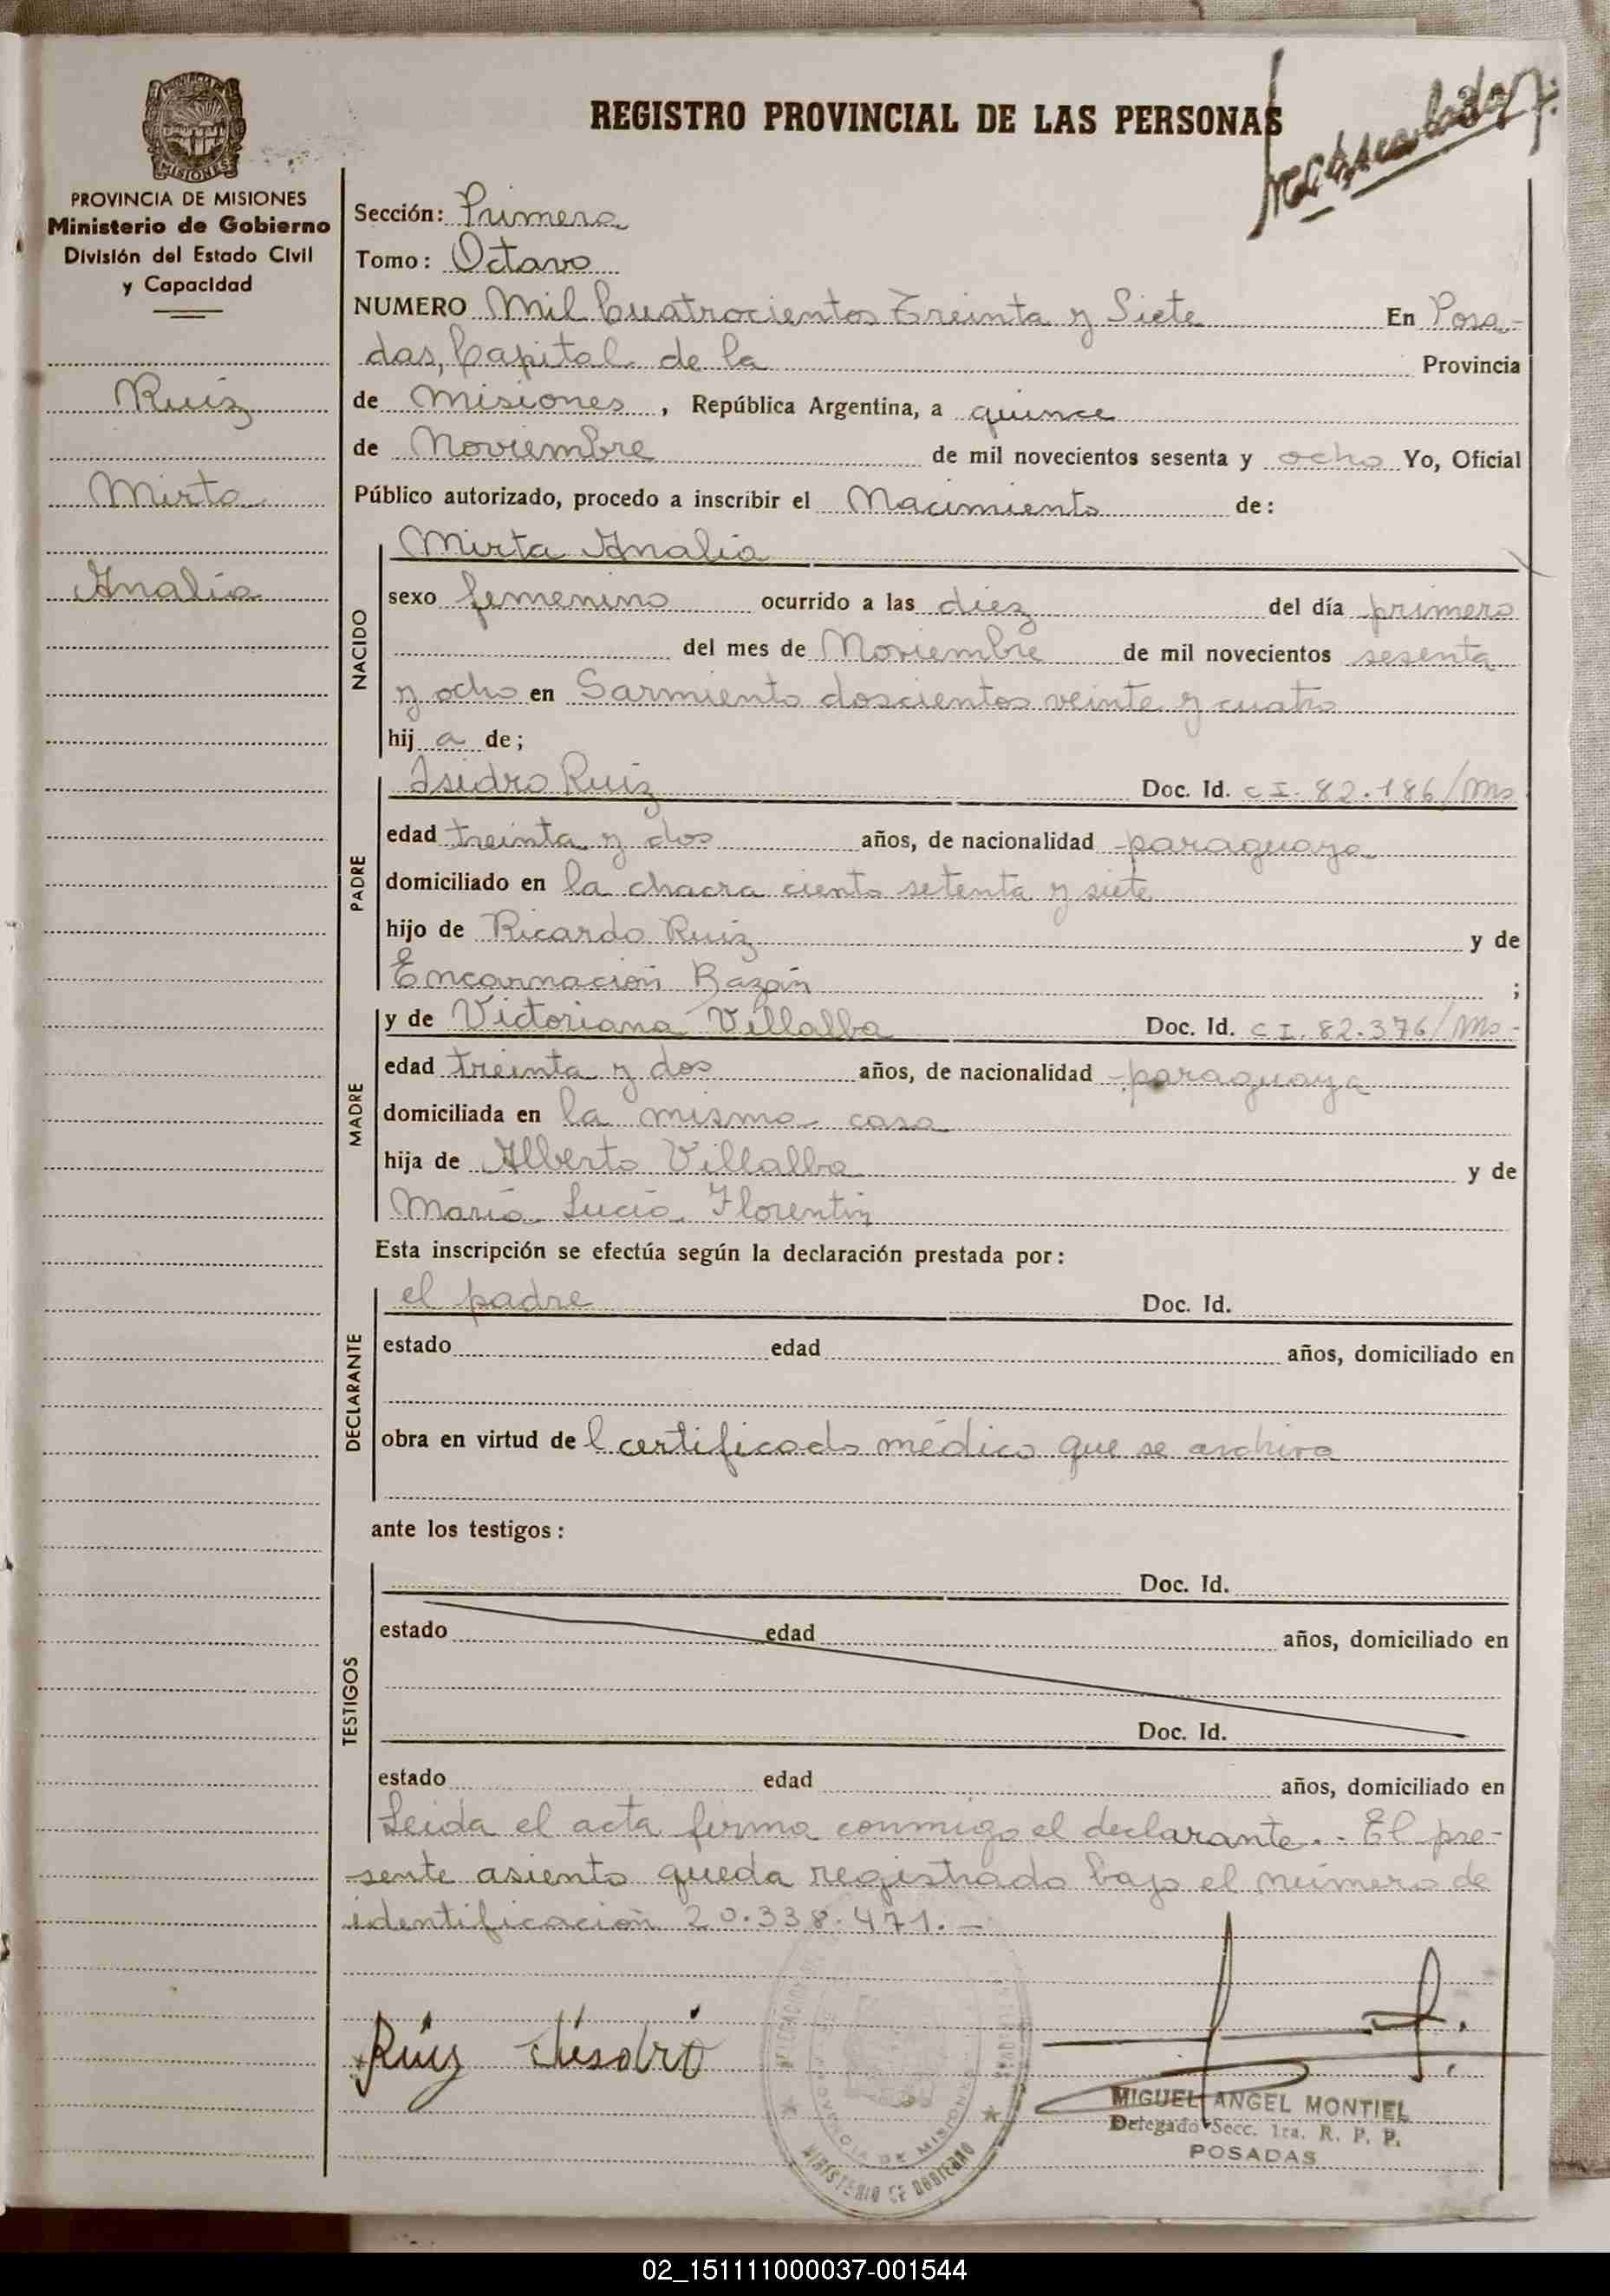 REGISTRO PROVINCIAL DE LAS PERSONAS
PROVINCIA DE MISIONES
Ministerio de Gobierno
División del Estado Civil
y Capacidad
Ruiz
Mirta
Analia
Sección: Primera
Tomo: Octavo
NUMERO Mil Cuatrocientos Treinta y Siete En Posa-
das, Capital de la Provincia
de Misiones, República Argentina, a quince
de Noviembre de mil novecientos sesenta y ocho Yo, Oficial
Público autorizado, procedo a inscribir el Nacimiento de:
NACIDO
Mirta Analia
sexo femenino ocurrido a las diez del día primero
del mes de Noviembre de mil novecientos sesenta
y ocho en Sarmiento doscientos veinte y cuatro
hij a de;
PADRE
Isidro Ruiz Doc. Id. C I. 82.186/Ms
edad treinta y dos años, de nacionalidad paraguaya
domiciliado en la chacra ciento setenta y siete
hijo de Ricardo Ruiz y de
Encarnación Bazán ;
MADRE
y de Victoriana Villalba Doc. Id. C I. 82.376/Ms-
edad treinta y dos años, de nacionalidad paraguaya
domiciliada en la misma casa
hija de Alberto Villalba y de
María Lucía Florentín
Esta inscripción se efectúa según la declaración prestada por:
DECLARANTE
el padre Doc. Id.
estado edad años, domiciliado en
obra en virtud del certificado médico que se archiva
ante los testigos:
TESTIGOS
Doc. Id.
estado edad años, domiciliado en
Doc. Id.
estado edad años, domiciliado en
Leida el acta firma conmigo el declarante.- El pre-
sente asiento queda registrado bajo el número de
identificación 20.338.471.-
Ruiz Isidro
PROVINCIA DE MISIONES
MINISTERIO DE GOBIERNO
MIGUEL ANGEL MONTIEL
Delegado Secc. 1ra. R. P. P.
POSADAS
02_151111000037-001544